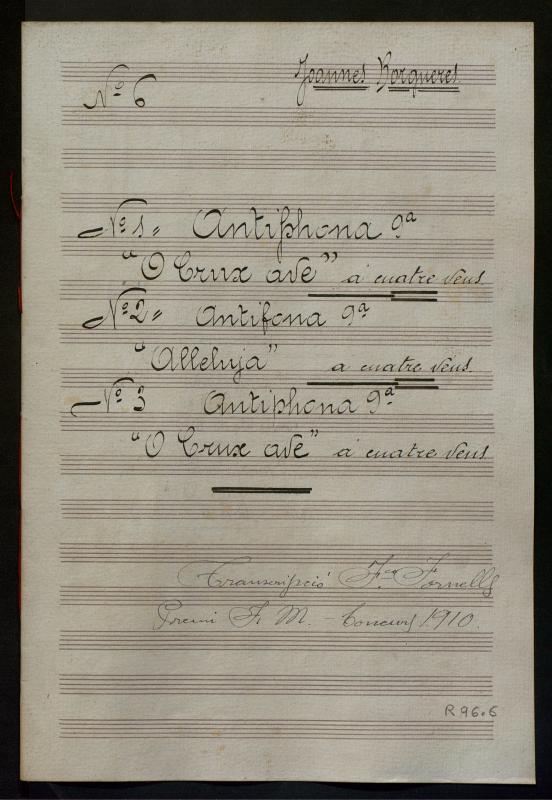 Joannes Borgueres
Nº 6
Nº 1„ Antiphona 9ª
"O Crux ave" a cuatre veus.
Nº 2„ Antifona 9ª
"Alleluja" a cuatre veus.
Nº 3 Antiphona 9ª
"O Crux ave" a cuatre veus
Transcripció F. Fornells
Premi F. M. - Concurs 1910.
R 96.6